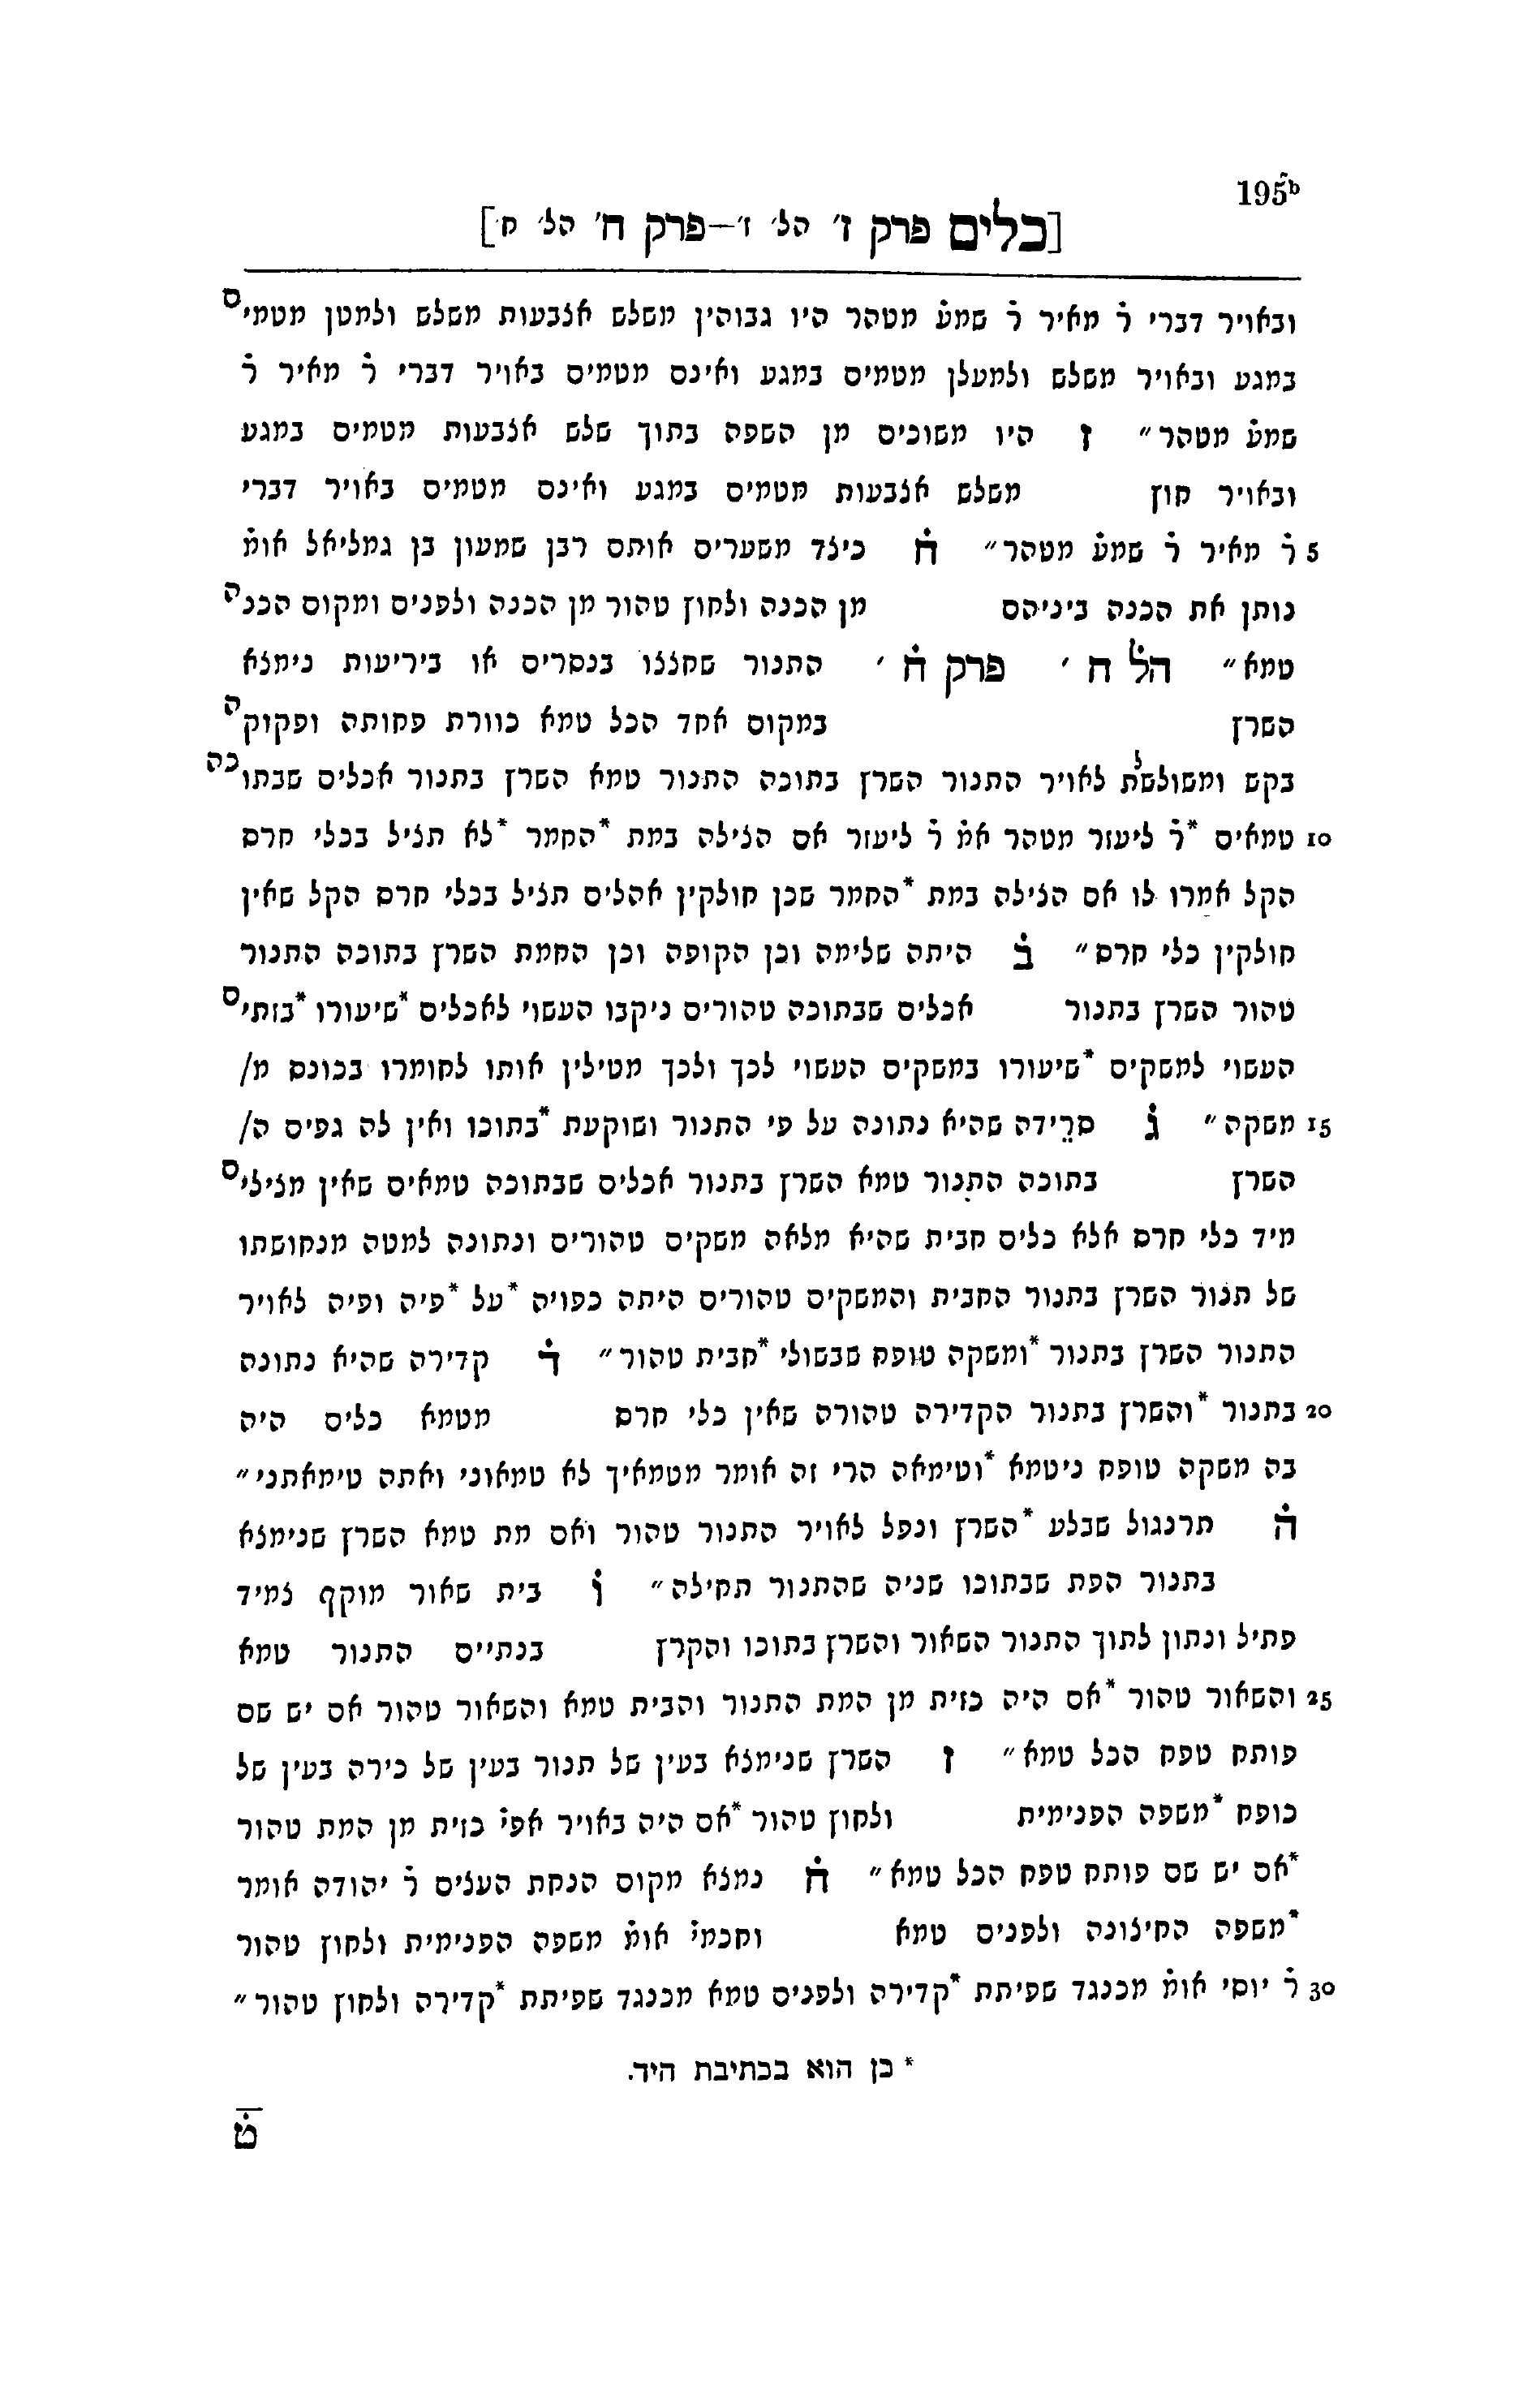 195b
[כלים פרק ז׳ הל׳ ז׳—פרק ח׳ הל׳ ח׳]
ובאויר דברי ר̇ מאיר ר̇ שמע̇ מטהר היו גבוהין משלש אצבעות משלש ולמטן מטמים
במגע ובאויר משלש ולמעלן מטמים במגע ואינם מטמים באויר דברי ר̇ מאיר ר̇
שמע̇ מטהר״ ז היו משוכים מן השפה בתוך שלש אצבעות מטמים במגע
ובאויר חוץ משלש אצבעות מטמים במגע ואינם מטמים באויר דברי
5 ר̇ מאיר ר̇ שמע̇ מטהר״ ח̇ כיצד משערים אותם רבן שמעון בן גמליאל אומ̇
נותן את הכנה ביניהם מן הכנה ולחוץ טהור מן הכנה ולפנים ומקום הכנה
טמא״ הל̇ ח׳ פרק ח̇׳ התנור שחצצו בנסרים או ביריעות נימצא
השרץ במקום אחד הכל טמא כוורת פחותה ופקוקה
בקש ומשולשלת לאויר התנור השרץ בתוכה התנור טמא השרץ בתנור אכלים שבתוכה
10 טמאים *ר̇ ליעזר מטהר אמ̇ ר̇ ליעזר אם הצילה במת *החמר *לא תציל בכלי חרס
הקל אמרו לו אם הצילה במת *החמר שכן חולקין אהלים תציל בכלי חרס הקל שאין
חולקין כלי חרס״ ב̇ היתה שלימה וכן הקופה וכן החמת השרץ בתוכה התנור
טהור השרץ בתנור אכלים שבתוכה טהורים ניקבו העשוי לאכלים *שיעורו *בזתים
העשוי למשקים *שיעורו במשקים העשוי לכך ולכך מטילין אותו לחומרו בכונס מ/
15 משקה״ ג̇ סרידה שהיא נתונה על פי התנור ושוקעת *בתוכו ואין לה גפים ה/
השרץ בתוכה התנור טמא השרץ בתנור אכלים שבתוכה טמאים שאין מצילים
מיד כלי חרס אלא כלים חבית שהיא מלאה משקים טהורים ונתונה למטה מנחושתו
של תנור השרץ בתנור החבית והמשקים טהורים היתה כפויה *על *פיה ופיה לאויר
התנור השרץ בתנור *ומשקה טופח שבשולי *חבית טהור״ ד̇ קדירה שהיא נתונה
20 בתנור *והשרץ בתנור הקדירה טהורה שאין כלי חרס מטמא כלים היה
בה משקה טופח ניטמא *וטימאה הרי זה אומר מטמאיך לא טמאוני ואתה טימאתני״
ה̇ תרנגול שבלע *השרץ ונפל לאויר התנור טהור ואם מת טמא השרץ שנימצא
בתנור הפת שבתוכו שניה שהתנור תחילה״ ו̇ בית שאור מוקף צמיד
פתיל ונתון לתוך התנור השאור והשרץ בתוכו והקרץ בנתיים התנור טמא
25 והשאור טהור *אם היה כזית מן המת התנור והבית טמא והשאור טהור אם יש שם
פותח טפח הכל טמא״ ז השרץ שנימצא בעין של תנור בעין של כירה בעין של
כופח *משפה הפנימית ולחוץ טהור *אם היה באויר אפי̇ כזית מן המת טהור
*אם יש שם פותח טפח הכל טמא״ ח̇ נמצא מקום הנחת העצים ר̇ יהודה אומר
*משפה החיצונה ולפנים טמא וחכמי̇ אומ̇ משפה הפנימית ולחוץ טהור
30 ר̇ יוסי אומ̇ מכנגד שפיתת *קדירה ולפנים טמא מכנגד שפיתת *קדירה ולחוץ טהור״
* כן הוא בכתיבת היד.
ט̇